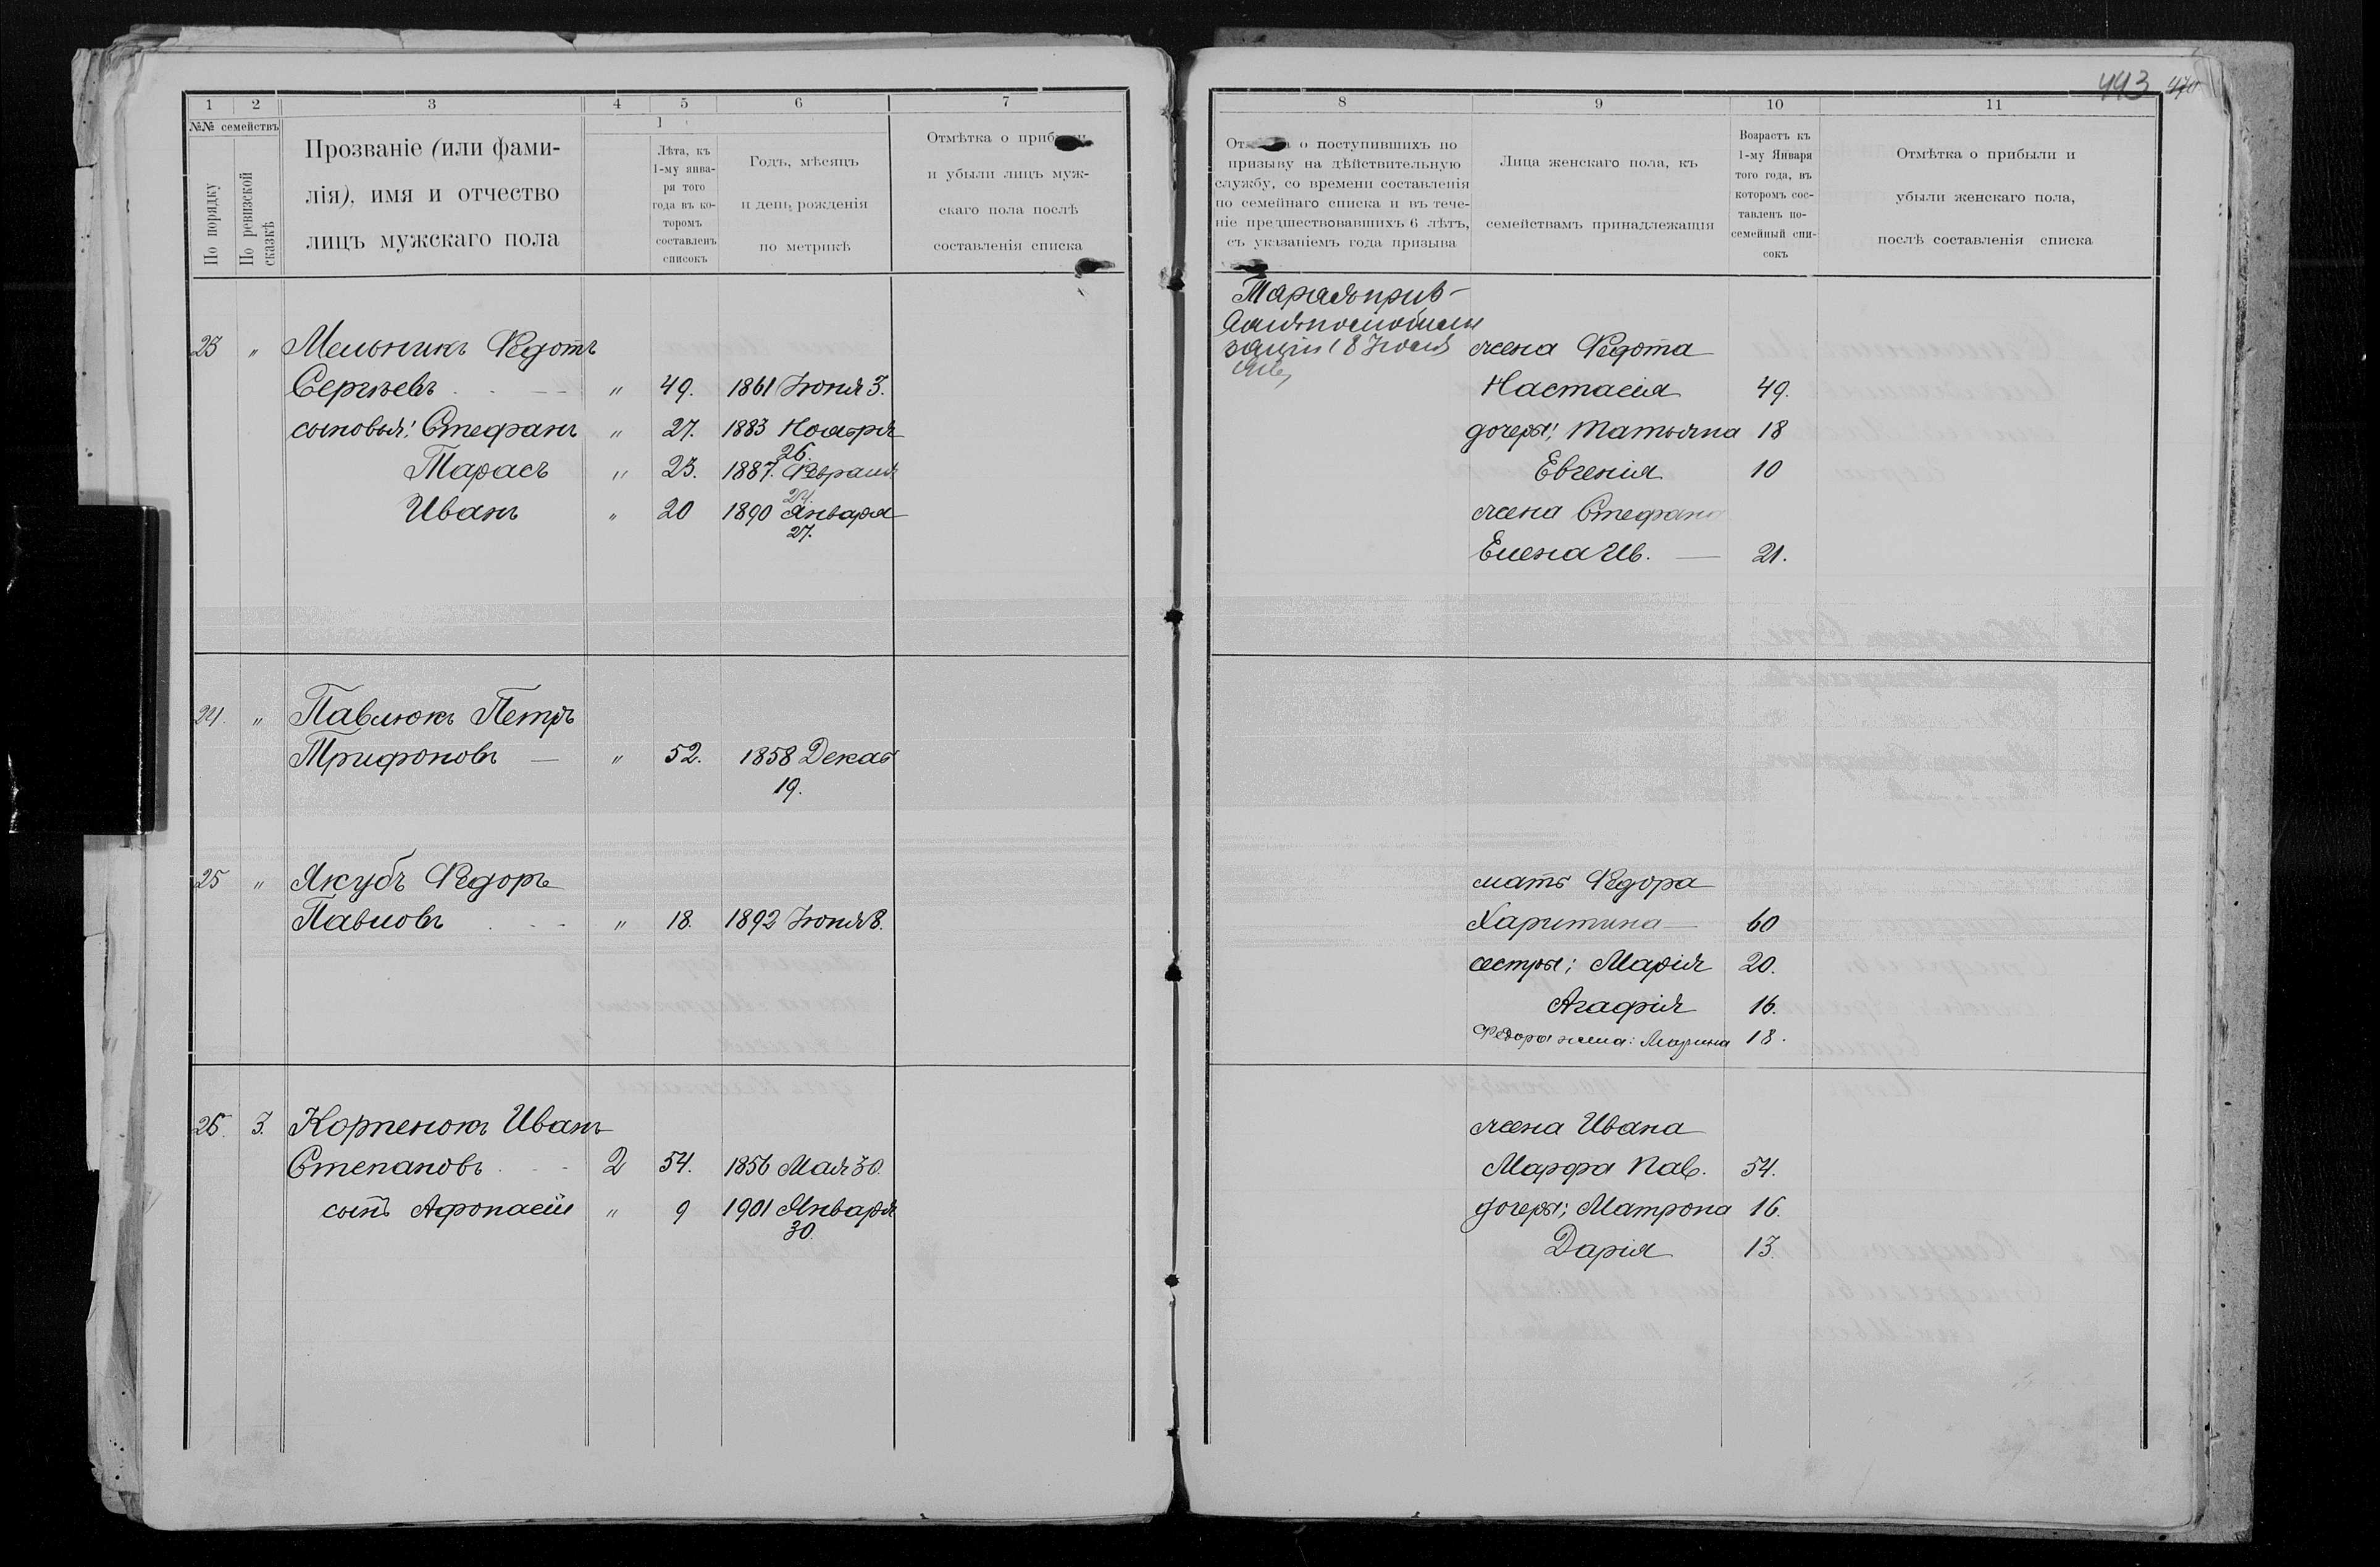 443 470
1 2 3 4 5 6 7
№№ семействъ
По порядку
По ревизской сказкѣ
Прозваніе (или фами-
лія), имя и отчество
лицъ мужскаго пола
1
Лѣта, къ
1-му янва-
ря того
года въ ко-
торомъ
составленъ
списокъ
Годъ, мѣсяцъ
и день рожденія
по метрикѣ
Отмѣтка о
и убыли лицъ муж-
скаго пола послѣ
составленія списка
23 " Мельникъ Ѳедотъ
Сергѣевъ " 49. 1861 Іюня 3.
сыновья: Стефанъ " 27. 1883 Ноября
26.
Тарасъ " 23. 1887. Февраля
24.
Иванъ " 20 1890 Января
27.
24. " Павлюкъ Петръ
Трифоновъ — " 52. 1858 Декаб
19.
25 " Якубъ Ѳедоръ
Павловъ " 18. 1892 Іюня 8.
26. 3. Корпенокъ Иванъ
Степановъ 2 54. 1856 Мая 30.
сынъ Афонасій " 9 1901 Января
30.
8 9 10 11
о поступившихъ по
призыву на дѣйствительную
службу, со времени составленія
по семейнаго списка и въ тече-
ніе предшествовавшихъ 6 лѣтъ,
съ указаніемъ года призыва
Лица женскаго пола, къ
семействамъ принадлежащія
Возрастъ къ
1-му Января
того года, въ
которомъ сос-
тавленъ по-
семейный спи-
сокъ
Отмѣтка о прибыли и
убыли женскаго пола,
послѣ составленія списка
18
жена Ѳедота
Настасія 49.
дочеры; Татьяна 18
Евгенія 10
жена Стефана
Елена Ив. — 21.
мать Ѳедора
Харитина — 60
сестры; Марія 20.
Агафія 16.
Ѳедора жена: Марина 18.
жена Ивана
Марфа Пав. 54.
дочеры; Матрона 16.
Дарія 13.